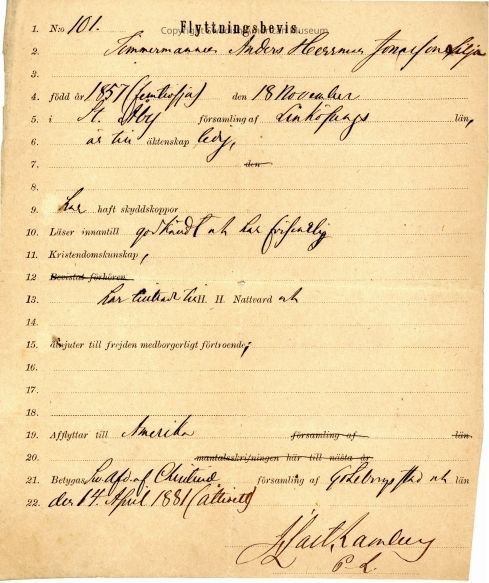 Flyttningsbevis
1. N:o 101.
2. Timmermannen Anders Herrman Jonasson Lilja
3.
4. född år 1857 (femtiosju) den 18 November
5. i St. Åby församling af Linköpings län,
6. är till äktenskap ledig,
7. den
8.
9. har haft skyddskoppor
10. Läser innantill godkändt och har
11. Kristendomskunskap,
12 Bevistat förhören
13. har tillträde till H. H. Nattvard och
14.
15. åtnjuter till frejden medborgerligt förtroende;
16.
17.
18.
19. Afflyttar till Amerika församling af län.
20. mantalsskrifningen här till nästa år
21. Betygas, församling af Göteborgs stad och län
22. den 14 April 1881 (åttioett)
P. L.